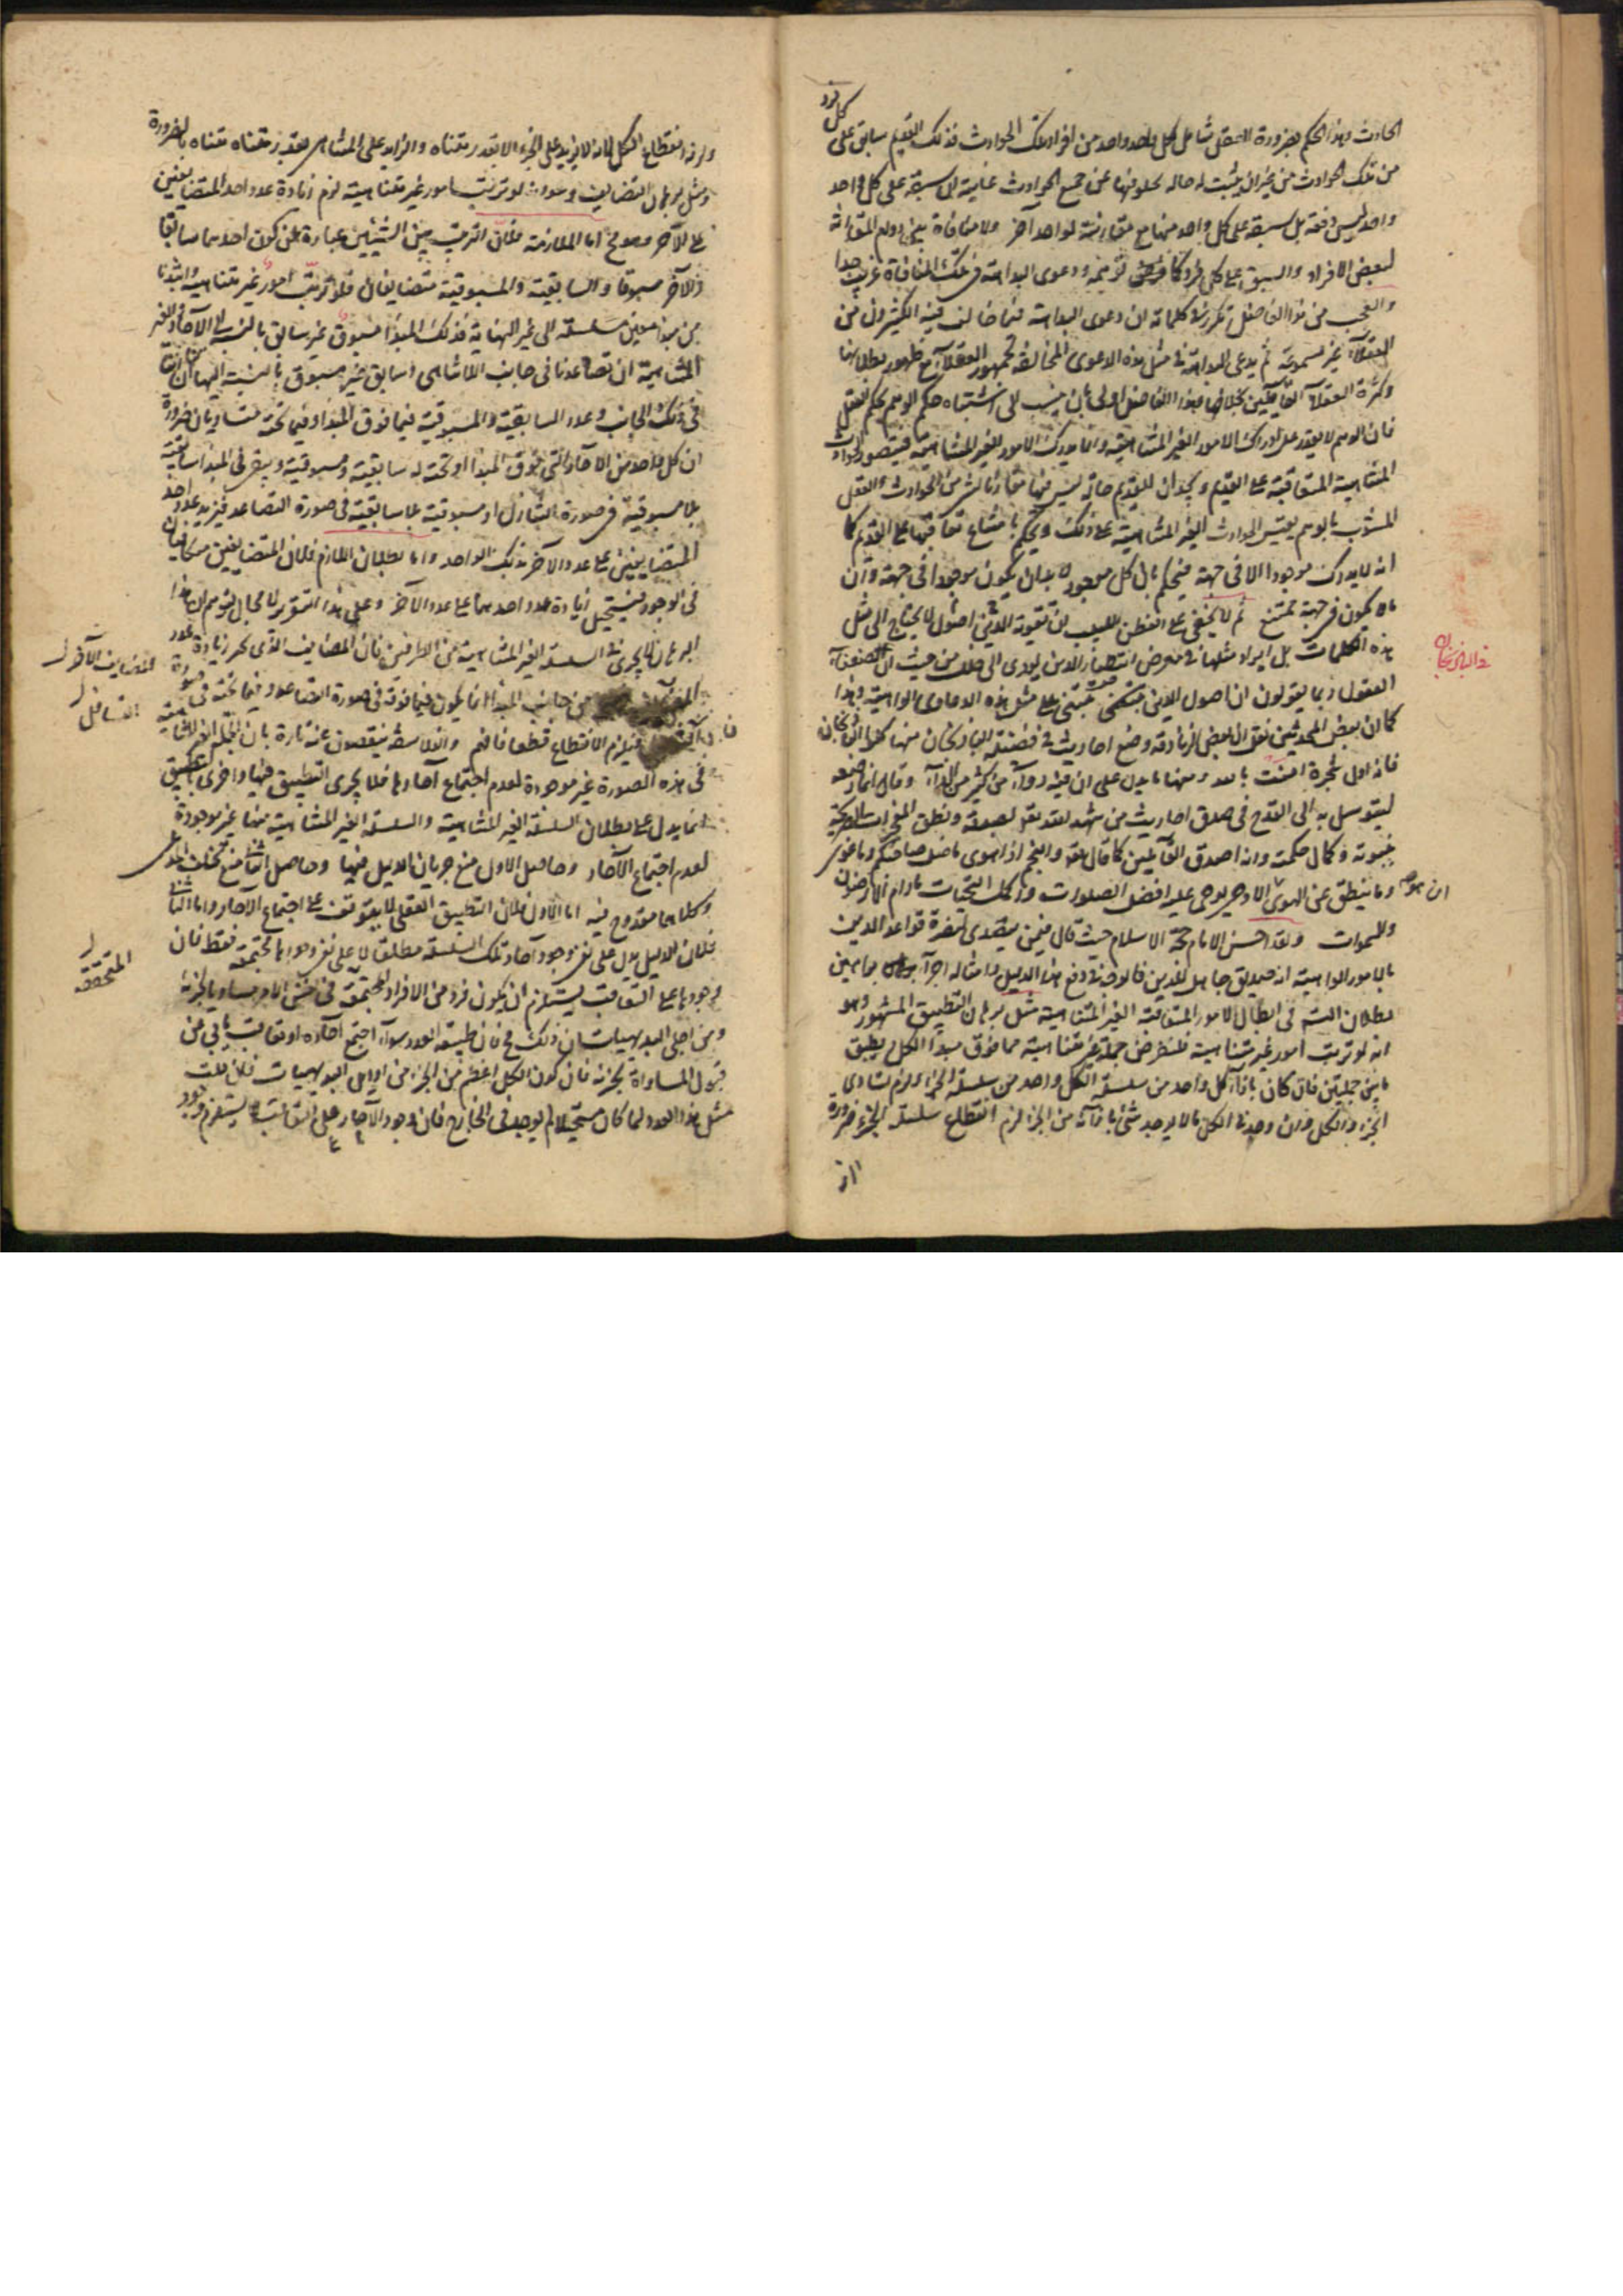 كل فرد
الحادث وهذا الحكم بضرورة العقل شامل لكل واحد واحد من افراد تلك الحوادث فذلك القديم سابق على
من تلك الحوادث من غير ان يثبت له حالة يخلو فيها عن جميع الحوادث غاية ان سبقه على كل واحد
واحد ليس دفعة بل سبقه على كل واحد منها مع مقارنة لواحد آخر ولا منافاة بين دوام المقارنة
لبعض الافراد والسبق على كل فرد كما توهمه ودعوى البداهة في تلك المنافاة غريب جدا
والعجب من هذا الفاضل تكرر في كلماته ان دعوى البداهة فيما خالف فيه الكثيرون من
العقلاء غير مسموعة ثم يدعى البداهة في مثل هذه الدعوى المخالفة لجمهور العقلاء مع ظهور بطلانها
وكثرة العقلاء القائلين بخلافها فهذا الفاضل اولى بان ينسب الى اشتباه حكم الوهم بحكم العقل
فان الوهم لا يقدر على ادراك الامور الغير المتناهية وانما يدرك الامور المتناهية فيتصور الحوادث
المتناهية المتعاقبة على القديم ويجد ان للقديم حالة ليس فيها مقارنا لشيء من الحوادث والعقل
المشوب بالوهم يقيس الحوادث الغير المتناهية على ذلك ويحكم بامتناع تعاقبها على القديم كما
انه لا يدرك موجودا الا في جهة فيحكم بان كل موجود لا بد ان يكون موجودا في جهة وان
ما لا يكون في جهة ممتنع ثم لا يخفى على الفطن اللبيب ان تقوية الدين اصول لا يحتاج الى مثل
هذه الكلمات بل ايراد مثلها في معرض استظهار الدين يؤدى الى خلل من حيث ان ضعفاء
العقول ربما يقولون ان اصول الدين مبتنى على مثل هذه الدعاوى الواهية وهذا
كما ان بعض المحدثين نقل ان بعض الزنادقة وضع احاديث في فضيلة الباذنجان منها كلوا الباذنجان
فانه اول شجرة آمنت بالله ومنها ما يدل على ان فيه دواء من كثير من الداء وقال انما وضعه
ليتوسل به الى القدح في صدق احاديث من شهد الله تعالى بصدقه ونطق المعجزات
بنبوته وكمال حكمته وانه اصدق القائلين كما قال الله تعالى والنجم اذا هوى ما ضل صاحبكم وما غوى
وما ينطق عن الهوى ان هو الا وحى يوحى عليه افضل الصلوات واكمل التحيات ما دام الارضون
والسموات ولقد احسن الامام حجة الاسلام حيث قال فيمن يتصدى لنصرة قواعد الدين
بالامور الواهية انه صديق جاهل للدين فالوجه في دفع هذا الدليل وامثاله اجراء براهين
بطلان التسلسل في ابطال الامور المتعاقبة الغير المتناهية مثل برهان التطبيق المشهور وهو
انه لو ترتبت امور غير متناهية فلنفرض جملة غير متناهية مما فوق مبدأ الكل ويطبق
بين جملتين فان كان بازاء كل واحد من سلسلة الكل واحد من سلسلة الجزء لزم تساوى
الجزء والكل وان وجد في الكل ما لا يوجد شيء بازائه من الجزء لزم انقطاع سلسلة الجزء ضرورة
ولزم انقطاع الكل لانه لا يزيد على الجزء الا بقدر متناه والزايد على المتناهى بقدر متناه متناه بالضرورة
ومثل برهان التضايف وهو انه لو ترتب امور غير متناهية لزم زيادة عدد احد المتضايفين
على الآخر وهو مح اما الملازمة فلان الترتب بين الشيئين عبارة عن كون احدهما سابقا
والآخر مسبوقا والسابقية والمسبوقية متضايفان فلو ترتب امور غير متناهية وابتدأنا
من مبدأ معين سلسلة الى غير النهاية فذلك المبدأ مسبوق غير سابق بالنسبة الى الآحاد الغير
المتناهية ان تصاعدنا في جانب اللاتناهى وسابق غير مسبوق بالنسبة اليها ان تنازلنا
في ذلك الجانب وعدد السابقية والمسبوقية فيما فوق المبدأ وفيما تحته متساويان ضرورة
ان كل واحد من الآحاد التي فوق المبدأ او تحته له سابقية ومسبوقية ويبقى في المبدأ سابقية
بلا مسبوقية في صورة التنازل او مسبوقية بلا سابقية في صورة التصاعد فيزيد عدد احد
المتضايفين على عدد الآخر بذلك الواحد واما بطلان اللازم فلان المتضايفين متكافيان
في الوجود فيستحيل زيادة عدد احدهما على عدد الآخر وعلى هذا التقرير لا مجال لتوهم ان هذا
البرهان لا يجرى في السلسلة الغير المتناهية من الطرفين فان المضايف الذى زيادة عدد
المضايف الآخر
من جانب المبدأ انما يكون فيما فوقه في صورة التصاعد وفيما تحته في صورة
التنازل
فيلزم الانقطاع قطعا فافهم والفلاسفة ينقصون عنه تارة بان الجملة الغير المتناهية
في هذه الصورة غير موجودة لعدم اجتماع آحادها فلا يجرى التطبيق فيها واخرى بان التطبيق
انما يدل على بطلان السلسلة الغير المتناهية والسلسلة الغير المتناهية منها غير موجودة
لعدم اجتماع الآحاد وحاصل الاول منع جريان الدليل فيها وحاصل الثانى منع تخلف المدعى
وكلاهما مقدوح فيه اما الاول فلان التطبيق العقلى لا يتوقف على اجتماع الآحاد واما الثانى
فلان الدليل يدل على نفى وجود آحاد تلك السلسلة مطلقا لا على نفى وجودها مجتمعة فقط فان
المتحققة
وجودها على التعاقب يستلزم ان يكون فرد من الافراد المجتمعة في نفس الامر مساويا لجزئه
ومن اجلى البديهيات ان ذلك مح فان طبيعة العدد سواء اجتمع آحاده او تعاقبت يابى من
قبول المساواة لجزئه فان كون الكل اعظم من الجزء من اوايل البديهيات فان قلت
مثل هذا العدد لما كان مستحيلا لم يوجد في الخارج فان وجود الآحاد على التعاقب لا يستلزم وجود